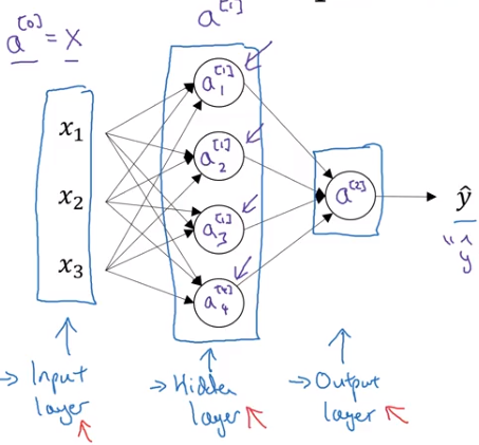 a^[1]
a^[0] = X
x₁
x₂
x₃
a₁^[1]
a₂^[1]
a₃^[1]
a₄^[1]
a^[2]
ŷ
"^
y
→ Input
layer
→ Hidden
layer
→ Output
layer